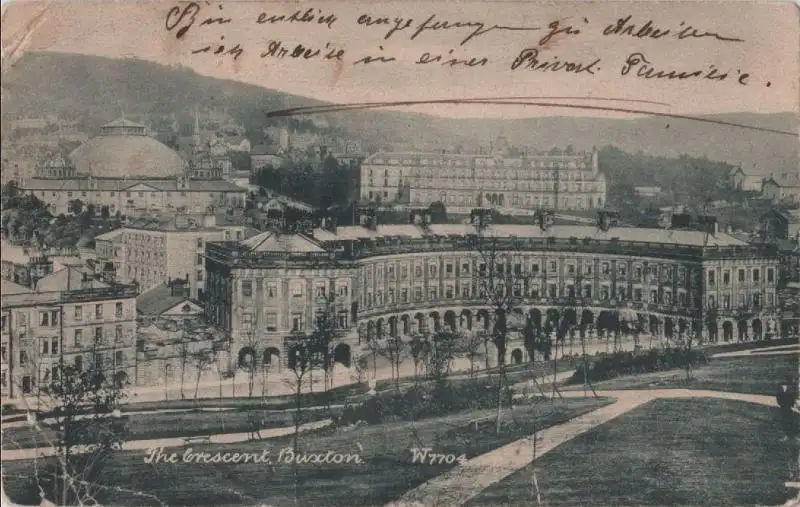 Bin endlich angefangen zu Arbeiten
ich Arbeite in einer Privat. Familie.
The Crescent, Buxton. W7704